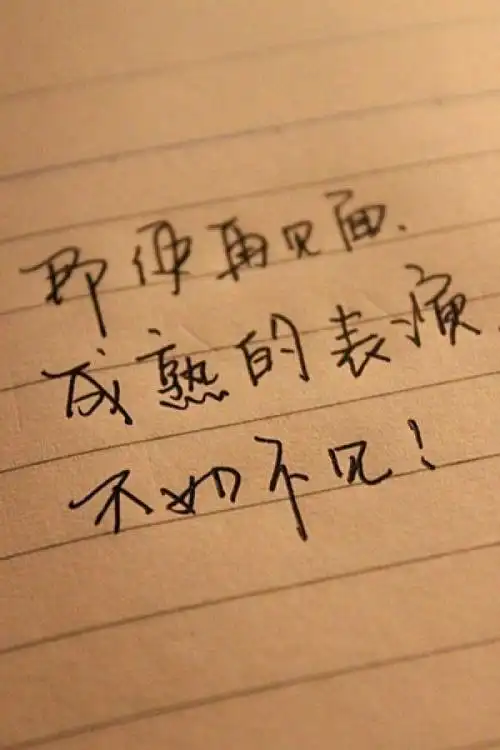 即便再见面.
成熟的表演
不如不见!